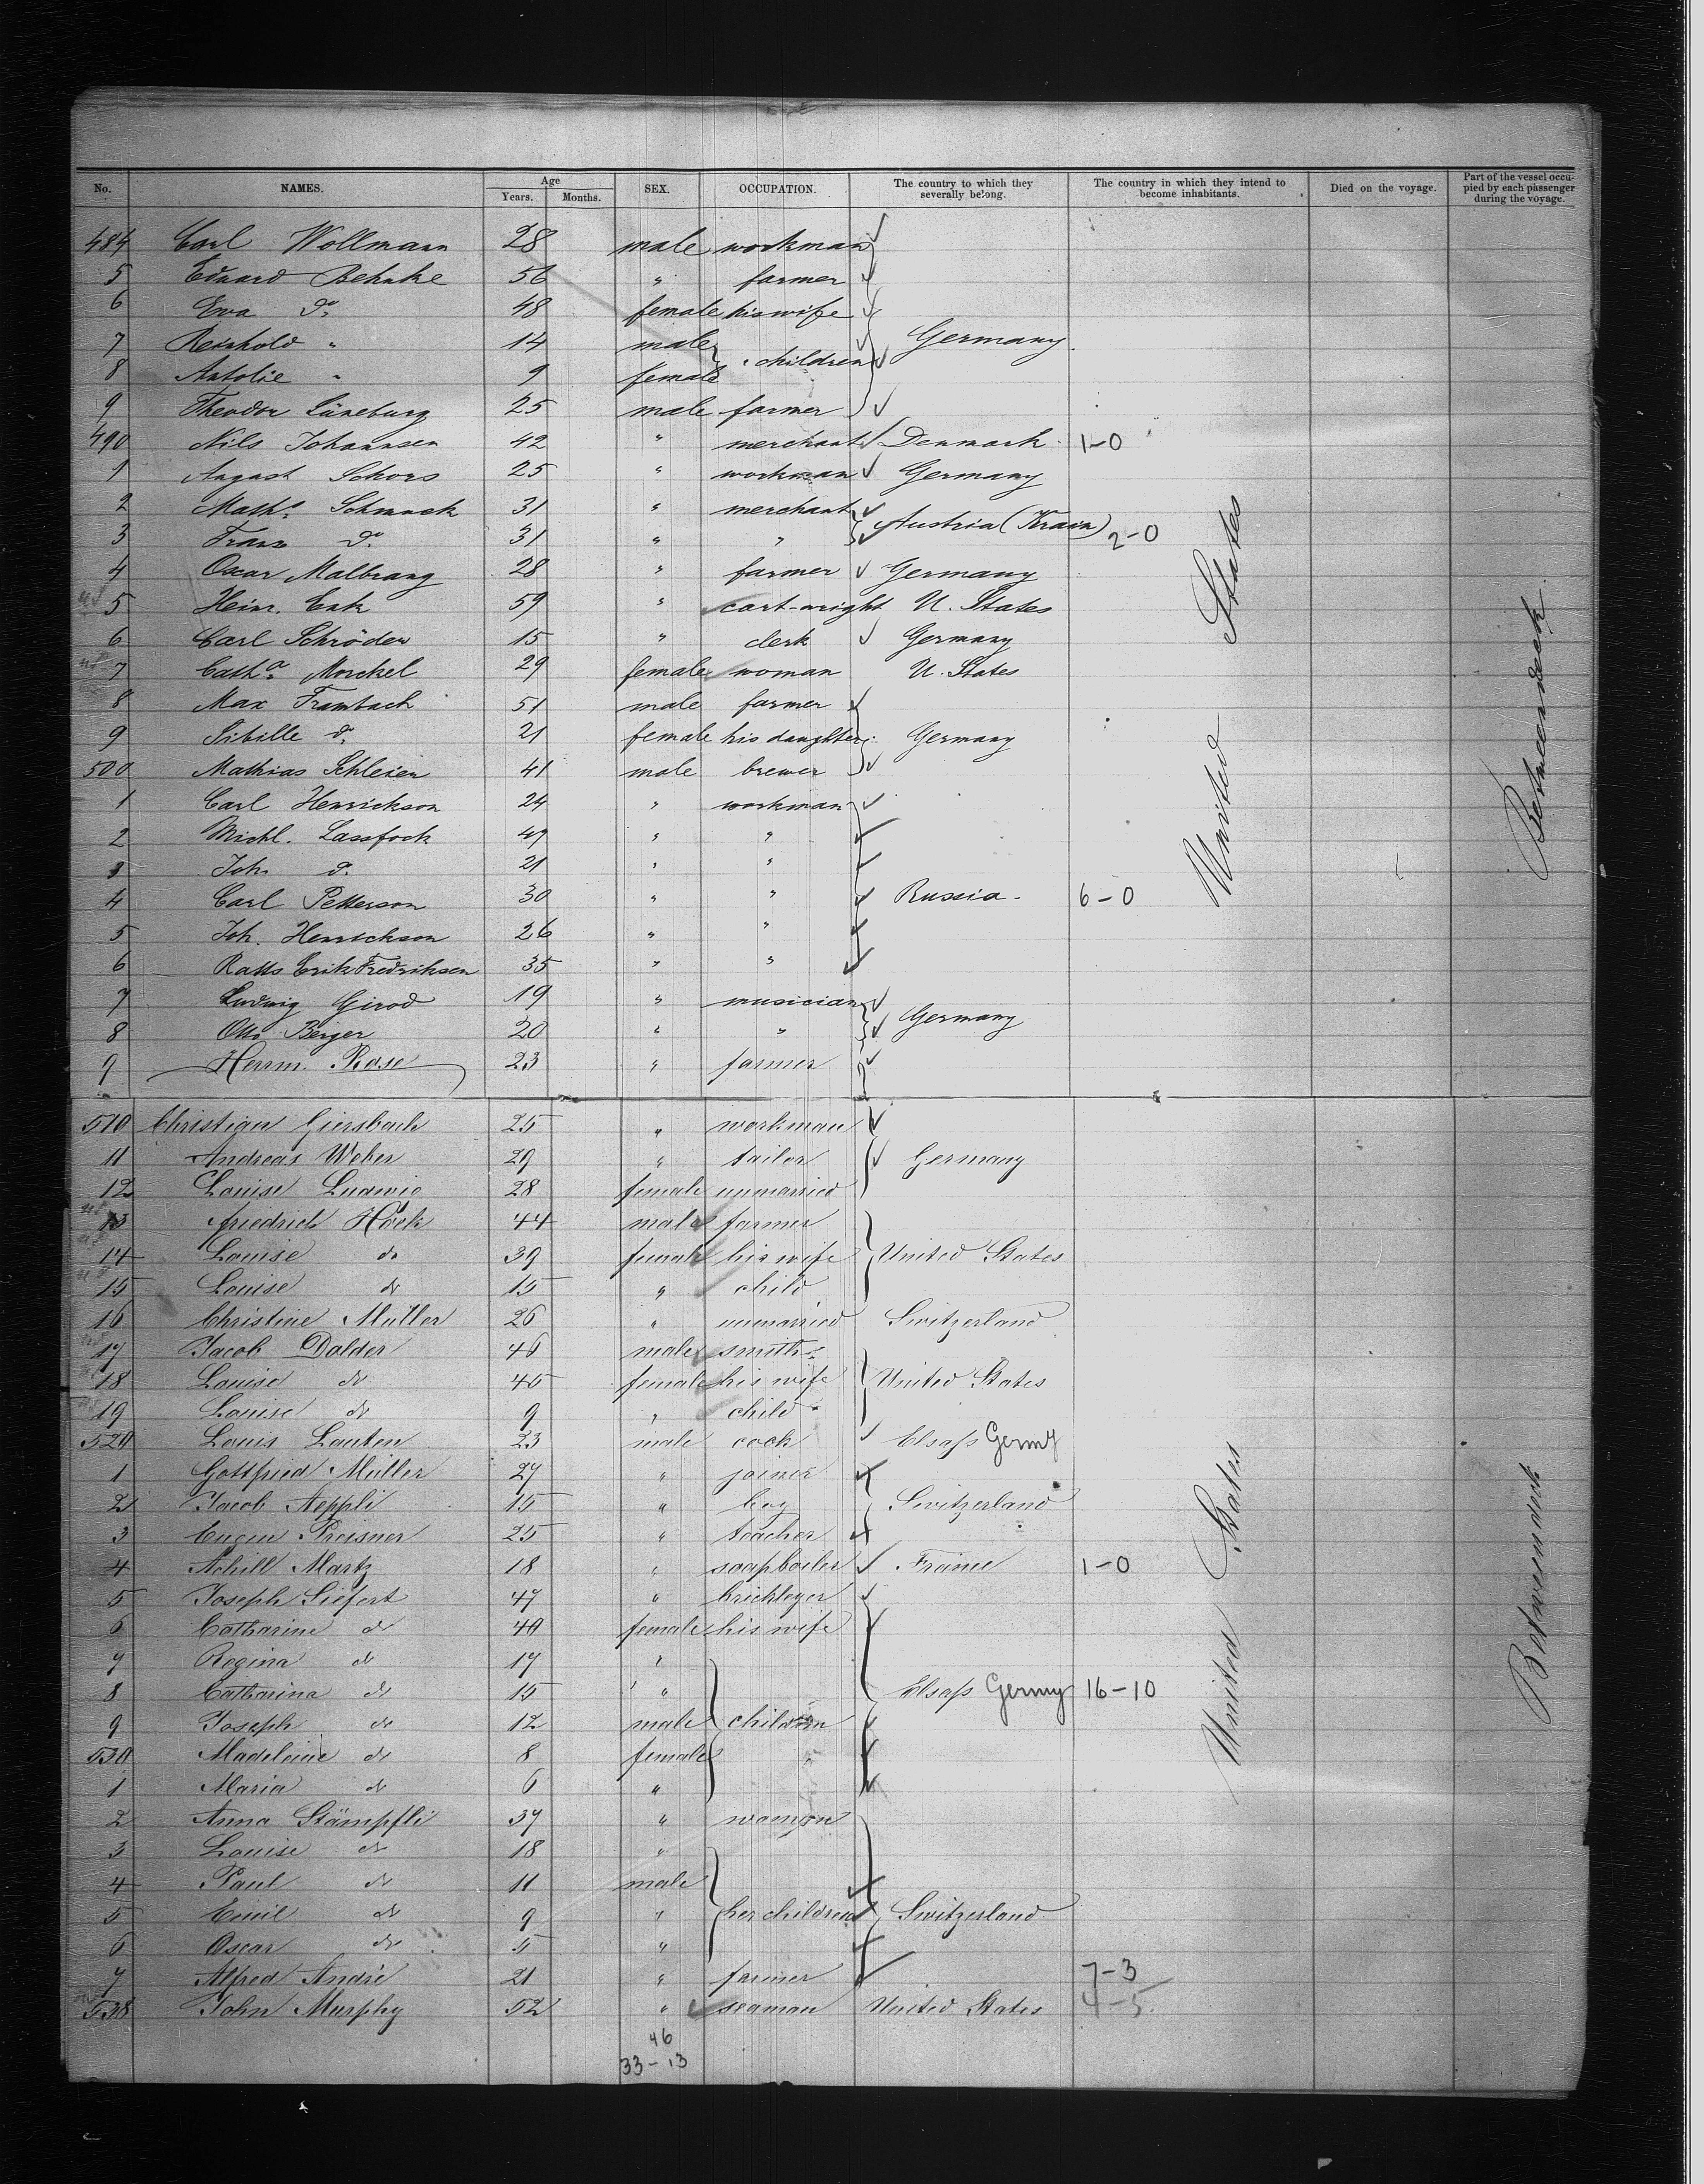 No. NAMES. Age Years. Months. SEX. OCCUPATION. The country to which they severally belong. The country in which they intend to become inhabitants. Died on the voyage. Part of the vessel occupied by each passenger during the voyage.
484 Carl Wollmann 28 male workman
5 Eduard Behnke 56 " farmer
6 Eva do. 48 female his wife
7 Reinhold " 14 male children Germany.
8 " 9 female
9 Theodor Lüneburg 25 male farmer
490 Nils Johannsen 42 " merchant Denmark. 1-0
1 August Schors 25 " workman Germany
2 Matha. Schmuck 31 " merchant Austria (Krain) 2-0
3 Franz do. 31 " "
4 Oscar Malbrang 28 " farmer Germany
5 Heinr. Enk 59 " cart-wright U. States
6 Carl Schröder 15 " clerk Germany
7 Catha. Morckel 29 female woman U. States
8 Max Frambach 51 male farmer
9 Sibille do. 21 female his daughter Germany
500 Mathias Schleier 41 male brewer
1 Carl Henrickson 24 " workman
2 Michl. Lassfock 49 " "
3 Joh. do. 21 " "
4 Carl Petterson 30 " " Russia - 6-0
5 Joh. Henrickson 26 " "
6 Ratts Erik Fredriksen 35 " "
7 Ludwig Girod 19 " musician Germany
8 Otto Berger 20 " "
9 Herrm. Rose 23 " farmer
United States
Betweendeck.
510 Christian Giersbach 25 " workman
11 Andreas Weber 29 " tailor Germany
12 Louise Ludwig 28 female unmarried
13 Friedrich Höck 44 male farmer
14 Louise do 39 female his wife United States
15 Louise do 15 " child
16 Christine Müller 26 " unmarried Switzerland
17 Jacob Dalder 46 male smith
18 Louise do 45 female his wife United States
19 Louise do 9 " child
520 Louis Lauten 23 male cook Elsass Germy
1 Gottfried Müller 27 " joiner
2 Jacob Aeppli 15 " boy Switzerland
3 Eugen Preisner 25 " teacher
4 Achill Martz 18 " soapboiler France 1-0
5 Joseph Siefert 47 " bricklayer
6 Catharine do 40 female his wife
7 Regina do 17 "
8 Catharina do 15 " Elsass Germy 16-10
9 Joseph do 12 male children
530 Madeleine do 8 female "
1 Maria do 6 "
2 Anna Stämpfli 37 " woman
3 Louise do 18 "
4 Paul do 11 male
5 Emil do 9 " her children Switzerland
6 Oscar do 5 "
7 Alfred André 21 " farmer 7-3
538 John Murphy 52 " seaman United States 4-5
United States
Betweendeck
46
33-13